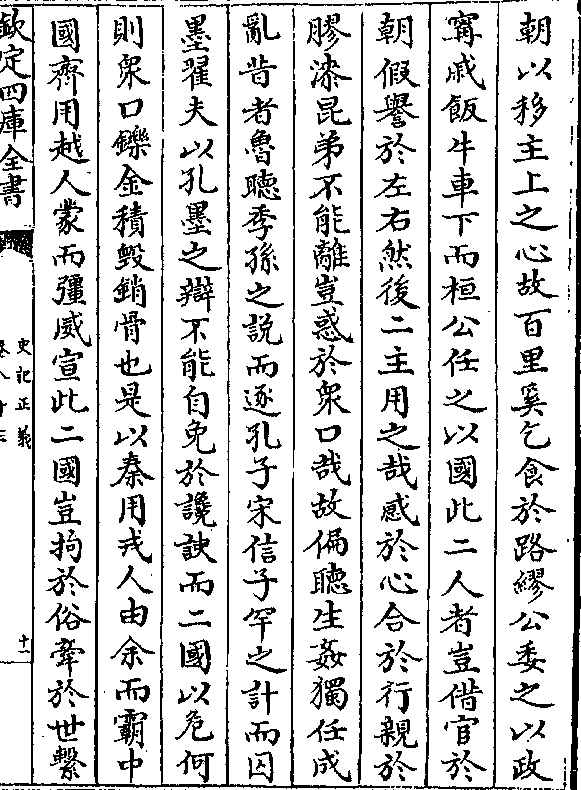 朝以移主上之心故百里奚乞食於路繆公委之以政
甯戚飯牛車下而桓公任之以國此二人者豈借宦於
朝假譽於左右然後二主用之哉感於心合於行親於
膠漆昆弟不能離豈惑於衆口哉故偏聽生姦獨任成
亂昔者魯聽季孫之說而逐孔子宋信子罕之計而囚
墨翟夫以孔墨之辯不能自免於讒諛而二國以危何
則衆口鑠金積毁銷骨也是以秦用戎人由余而霸中
國齊用越人蒙而彊威宣此二國豈拘於俗牽於世繫
欽定四庫全書
史記正義
卷八十三
十一